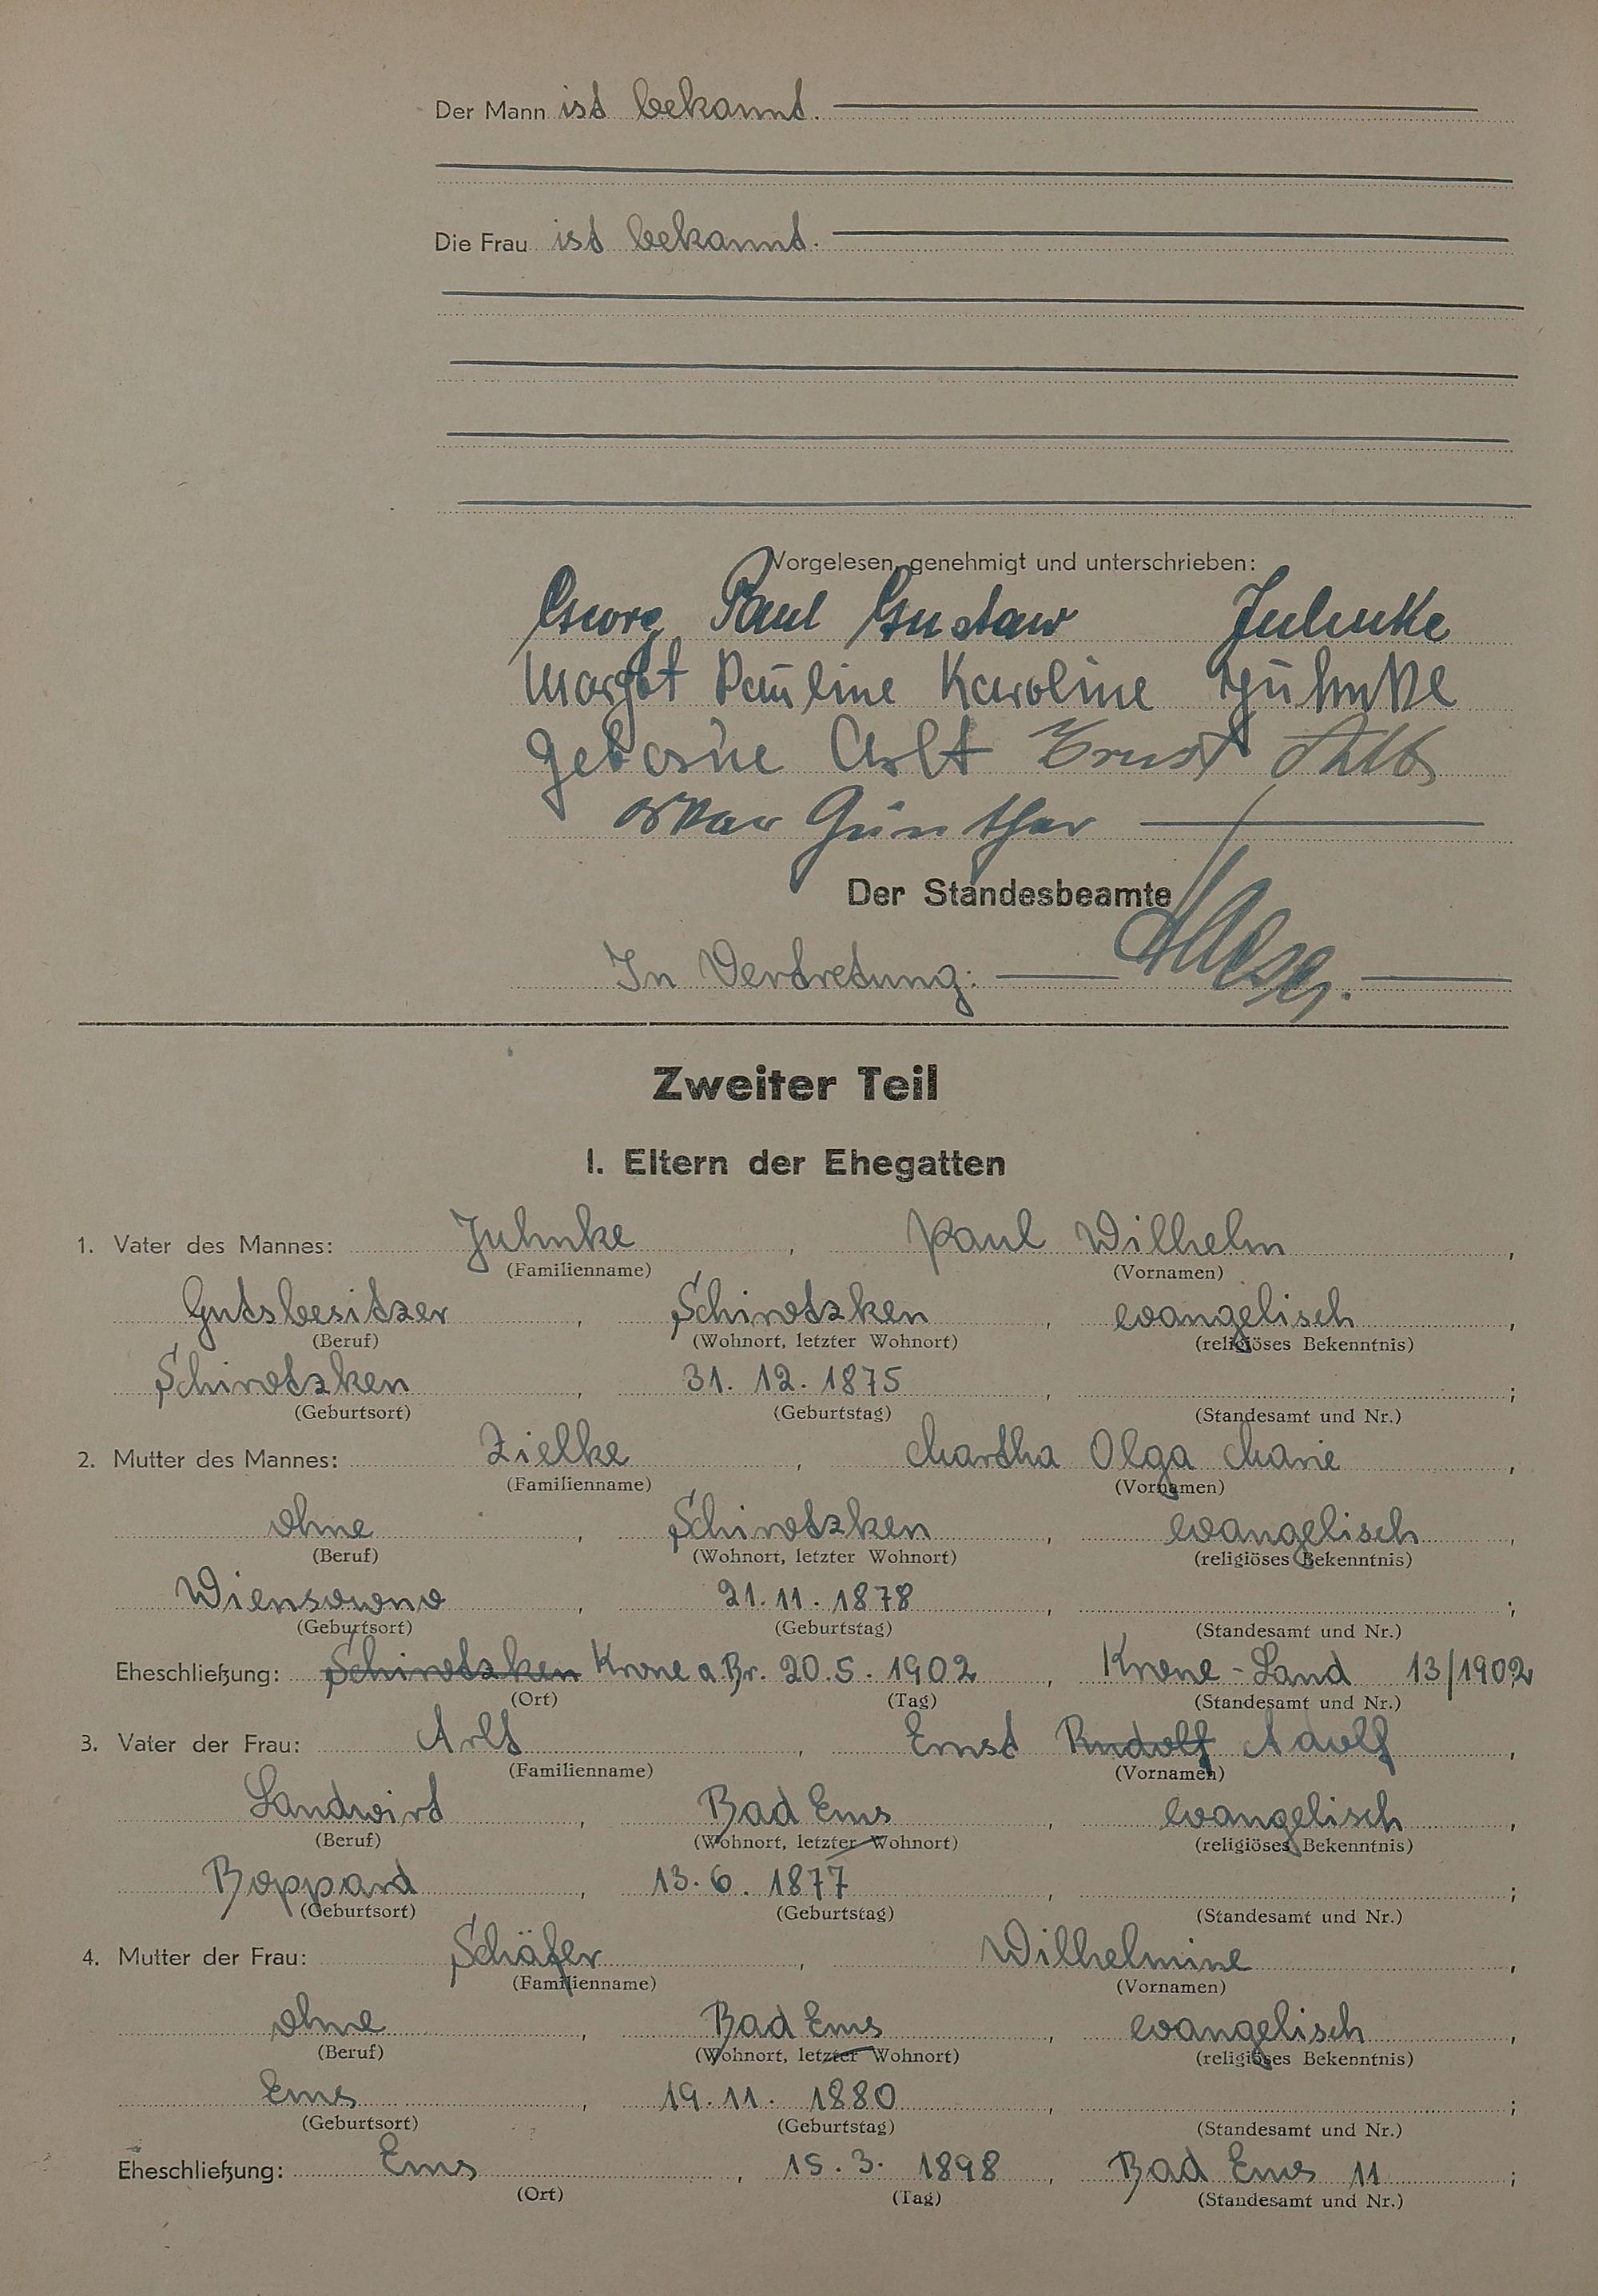 Der Mann ist bekannt.
Die Frau ist bekannt.
Vorgelesen, genehmigt und unterschrieben:
Georg Paul Gustaw Juhnke
Margot Pauline Karoline Juhnke
geborne Arlt Ernst
Oskar Günther
Der Standesbeamte
In Vertretung:
Zweiter Teil
I. Eltern der Ehegatten
1. Vater des Mannes: Juhnke , Paul Wilhelm ,
(Familienname) (Vornamen)
Gutsbesitzer , Schirotzken , evangelisch ,
(Beruf) (Wohnort, letzter Wohnort) (religiöses Bekenntnis)
Schirotzken , 31. 12. 1875 , ;
(Geburtsort) (Geburtstag) (Standesamt und Nr.)
2. Mutter des Mannes: Zielke , Martha Olga Marie ,
(Familienname) (Vornamen)
ohne , Schirotzken , evangelisch ,
(Beruf) (Wohnort, letzter Wohnort) (religiöses Bekenntnis)
Wiensowno , 21. 11. 1878 , ;
(Geburtsort) (Geburtstag) (Standesamt und Nr.)
Eheschließung: Schirotzken Krone a. Br. 20. 5. 1902 , Krone-Land 13/1902
(Ort) (Tag) (Standesamt und Nr.)
3. Vater der Frau: Arlt , Ernst Rudolf Adolf ,
(Familienname) (Vornamen)
Landwirt , Bad Ems , evangelisch ,
(Beruf) (Wohnort, letzter Wohnort) (religiöses Bekenntnis)
Boppard , 13. 6. 1877 , ;
(Geburtsort) (Geburtstag) (Standesamt und Nr.)
4. Mutter der Frau: Schäfer , Wilhelmine ,
(Familienname) (Vornamen)
ohne , Bad Ems , evangelisch ,
(Beruf) (Wohnort, letzter Wohnort) (religiöses Bekenntnis)
Ems , 19. 11. 1880 , ;
(Geburtsort) (Geburtstag) (Standesamt und Nr.)
Eheschließung: Ems , 15. 3. 1898 , Bad Ems 11 ;
(Ort) (Tag) (Standesamt und Nr.)